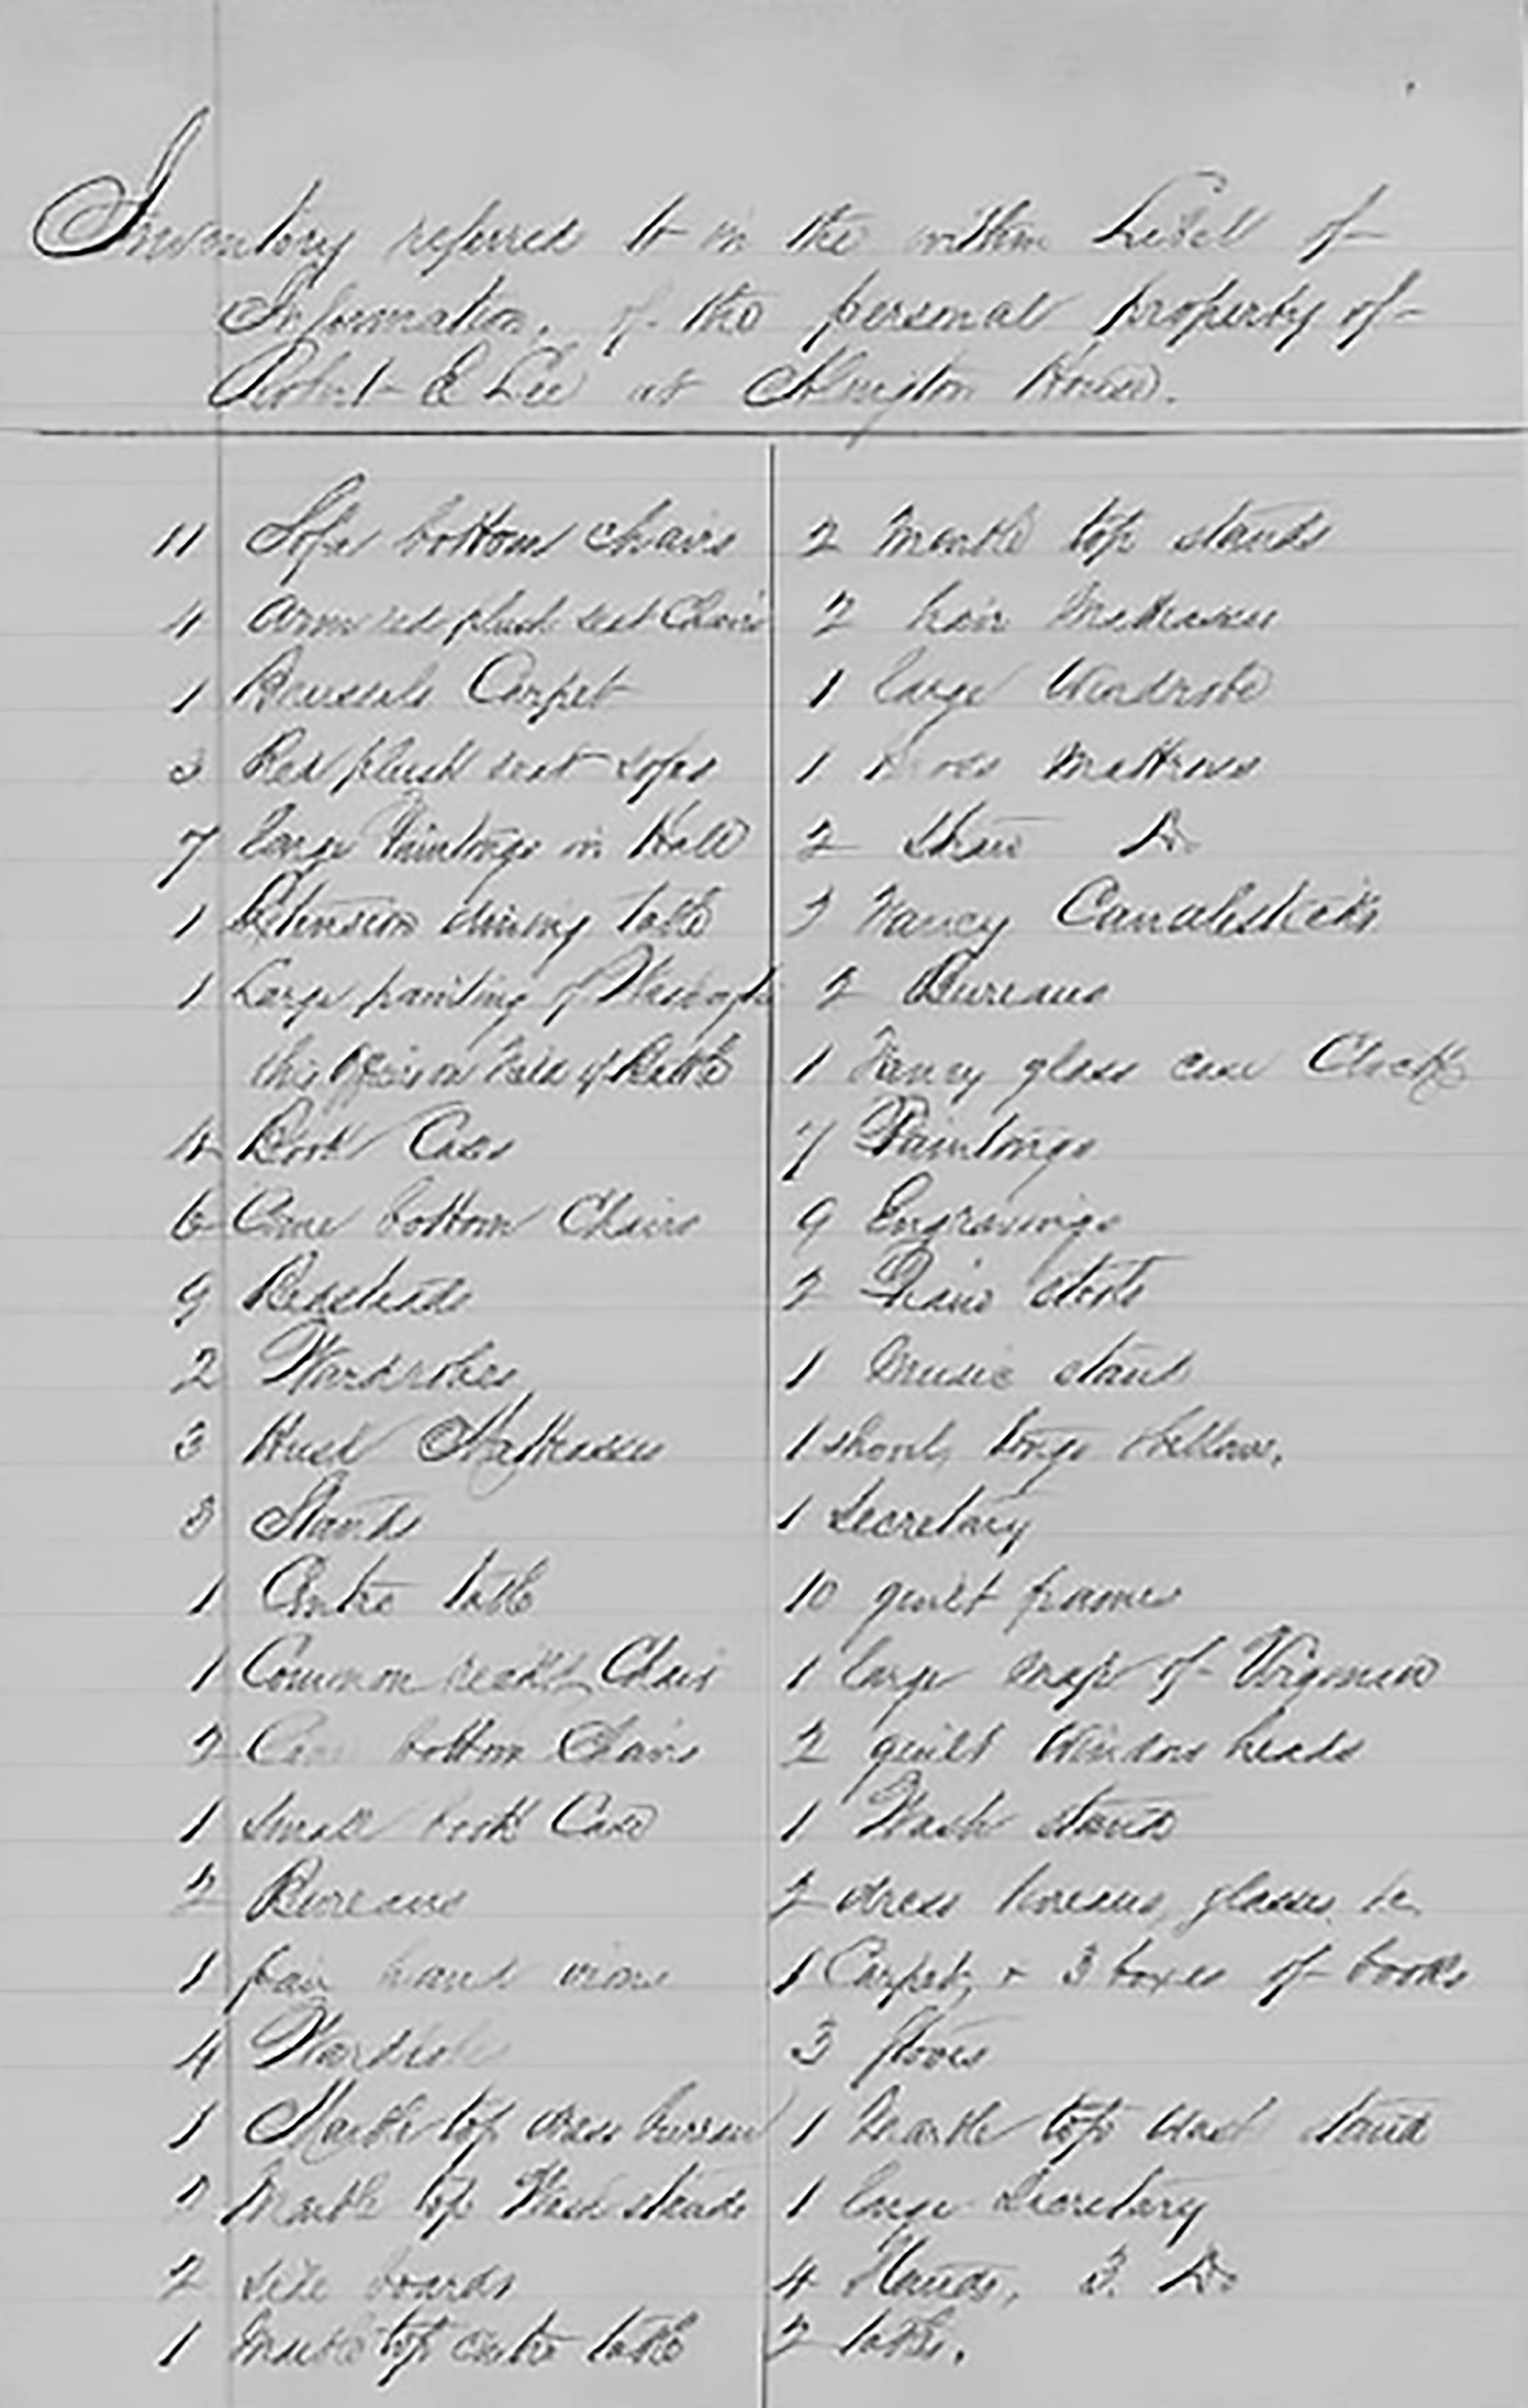 Inventory referred to in the within Libell of
Information, of the personal property of
Robert E Lee at Arlington House.
11 Sofa bottom chairs
4 Arm red plush seat Chairs
1 Brussels Carpet
3 Red plush seat sofas
7 large Paintings in Hall
1 Extension dining table
1 Large painting of
his on Field of Battle
4 Book Cases
6 Cane bottom Chairs
9 Bedsteads
2 Wardrobes
3 Husk Mattrasses
3 Stands
1 Centre table
1 Common Chair
2 bottom Chairs
1 small book Case
2 Bureaus
1 pair hand irons
4 Wardrobes
1 Marble top dress bureau
2 Marble top Wash stands
2 side boards
1 marble top centre table
2 marble top stands
2 hair Mattrasses
1 large Wardrobe
1 Mattress
2 Straw Do
2 Fancy Candlesticks
2 Bureaus
1 Fancy glass case Clock
7 Paintings
9 Engravings
2 Piano stools
1 Music stand
1 shovel, tongs bellows,
1 Secretary
10 guilt frames
1 large map of Virginia
2 guilt Window heads
1 Wash stand
2 dress bureaus, glasses &c
1 Carpet, & 3 boxes of books
3 stoves
1 Marble top wash stand
1 large Secretary
4 Stands, 3. Do
2 tables.